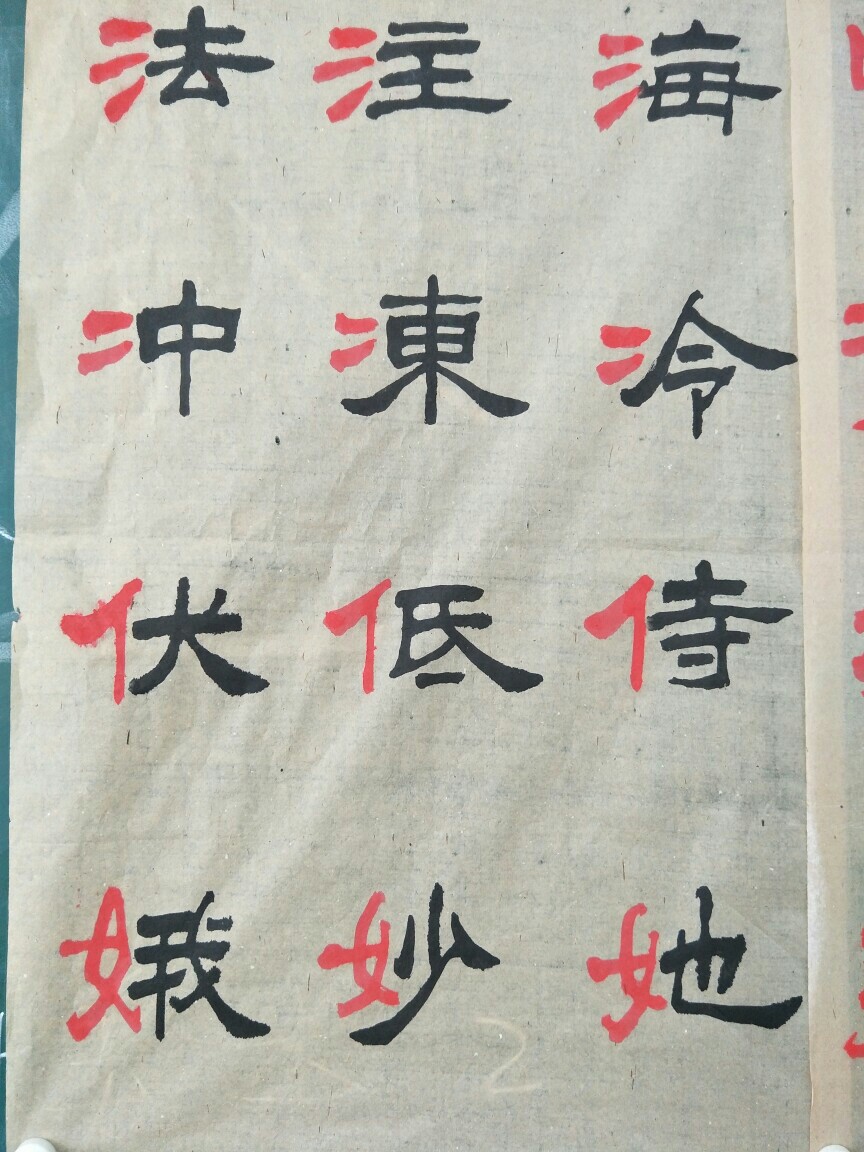 法 注 海
冲 凍 冷
伏 低 侍
娥 妙 她
2